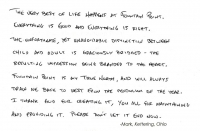 THE VERY BEST OF LIFE HAPPENS AT FOUNTAIN POINT.
EVERYTHING IS GOOD AND EVERYTHING IS RIGHT.
THE UNFORTUNATE, YET UNAVOIDABLE DISTINCTION BETWEEN
CHILD AND ADULT IS GRACIOUSLY BRIDGED - THE
RESULTING IMPRESSION BEING BRANDED TO THE HEART.
FOUNTAIN POINT IS MY TRUE NORTH, AND WILL ALWAYS
TRACK ME BACK TO WEST FROM THE BEGINNING OF THE YEAR.
I THANK GOD FOR CREATING IT, YOU ALL FOR MAINTAINING
AND PROVIDING IT. PLEASE DON'T LET IT END NOW.
-Mark, Kettering, Ohio